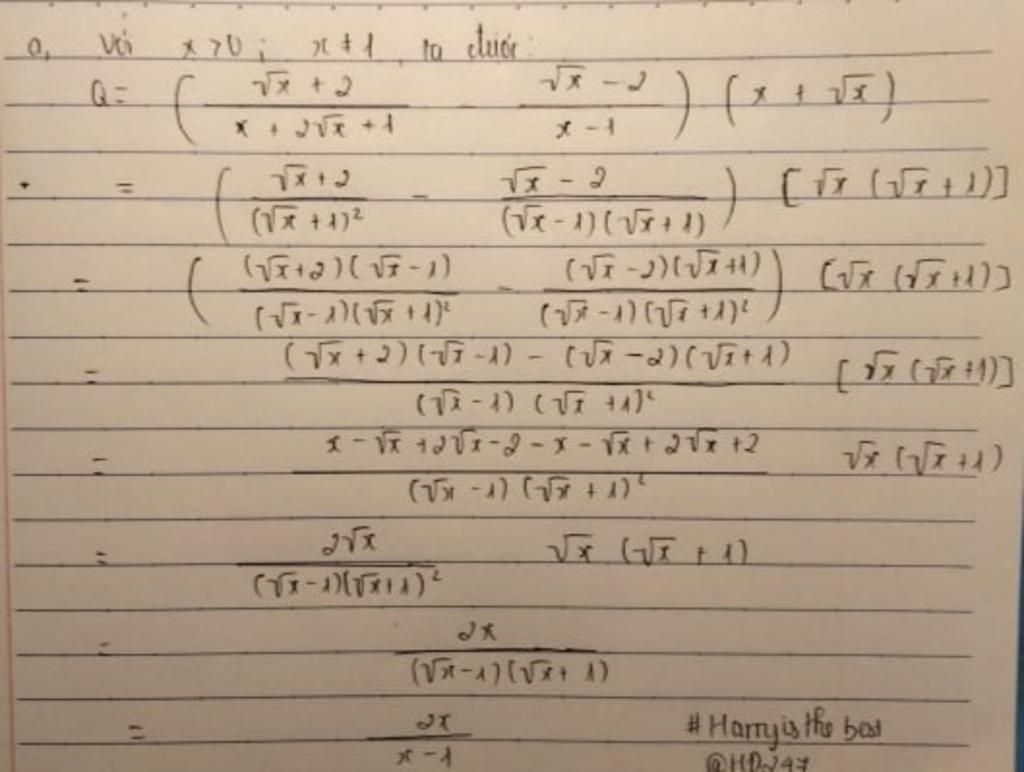 a, Với x > 0 ; x ≠ 1 , ta được:
Q = ( (√x + 2)/(x + 2√x + 1) - (√x - 2)/(x - 1) ) (x + √x)
= ( (√x + 2)/(√x + 1)² - (√x - 2)/((√x - 1)(√x + 1)) ) [√x (√x + 1)]
= ( ((√x + 2)(√x - 1))/((√x - 1)(√x + 1)²) - ((√x - 2)(√x + 1))/((√x - 1)(√x + 1)²) ) [√x (√x + 1)]
= ((√x + 2)(√x - 1) - (√x - 2)(√x + 1))/((√x - 1)(√x + 1)²) [√x (√x + 1)]
= (x - √x + 2√x - 2 - x - √x + 2√x + 2)/((√x - 1)(√x + 1)²) √x (√x + 1)
= 2√x/((√x - 1)(√x + 1)²) √x (√x + 1)
= 2x/((√x - 1)(√x + 1))
= 2x/(x - 1) # Harry is the best
@HD247